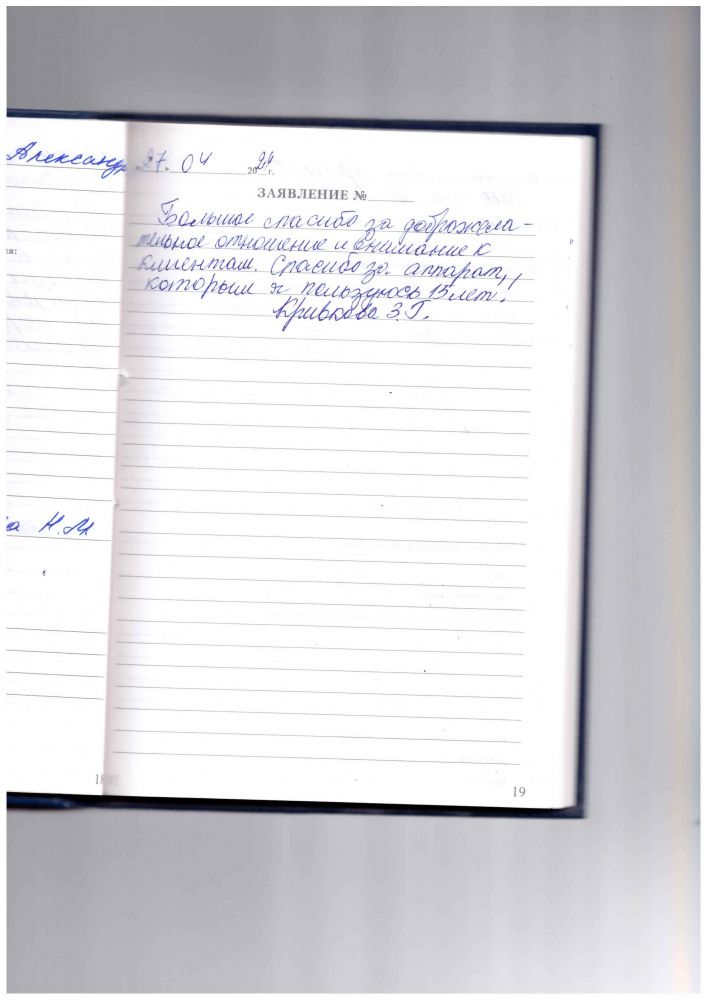 Александр
27. 04 2024 г.
ЗАЯВЛЕНИЕ №
Большое спасибо за доброжела-
тельное отношение и внимание к
клиентам. Спасибо за аппарат,
которым я пользуюсь 15 лет.
Кривкова З.Г.
ия:
а Н.М
18
19